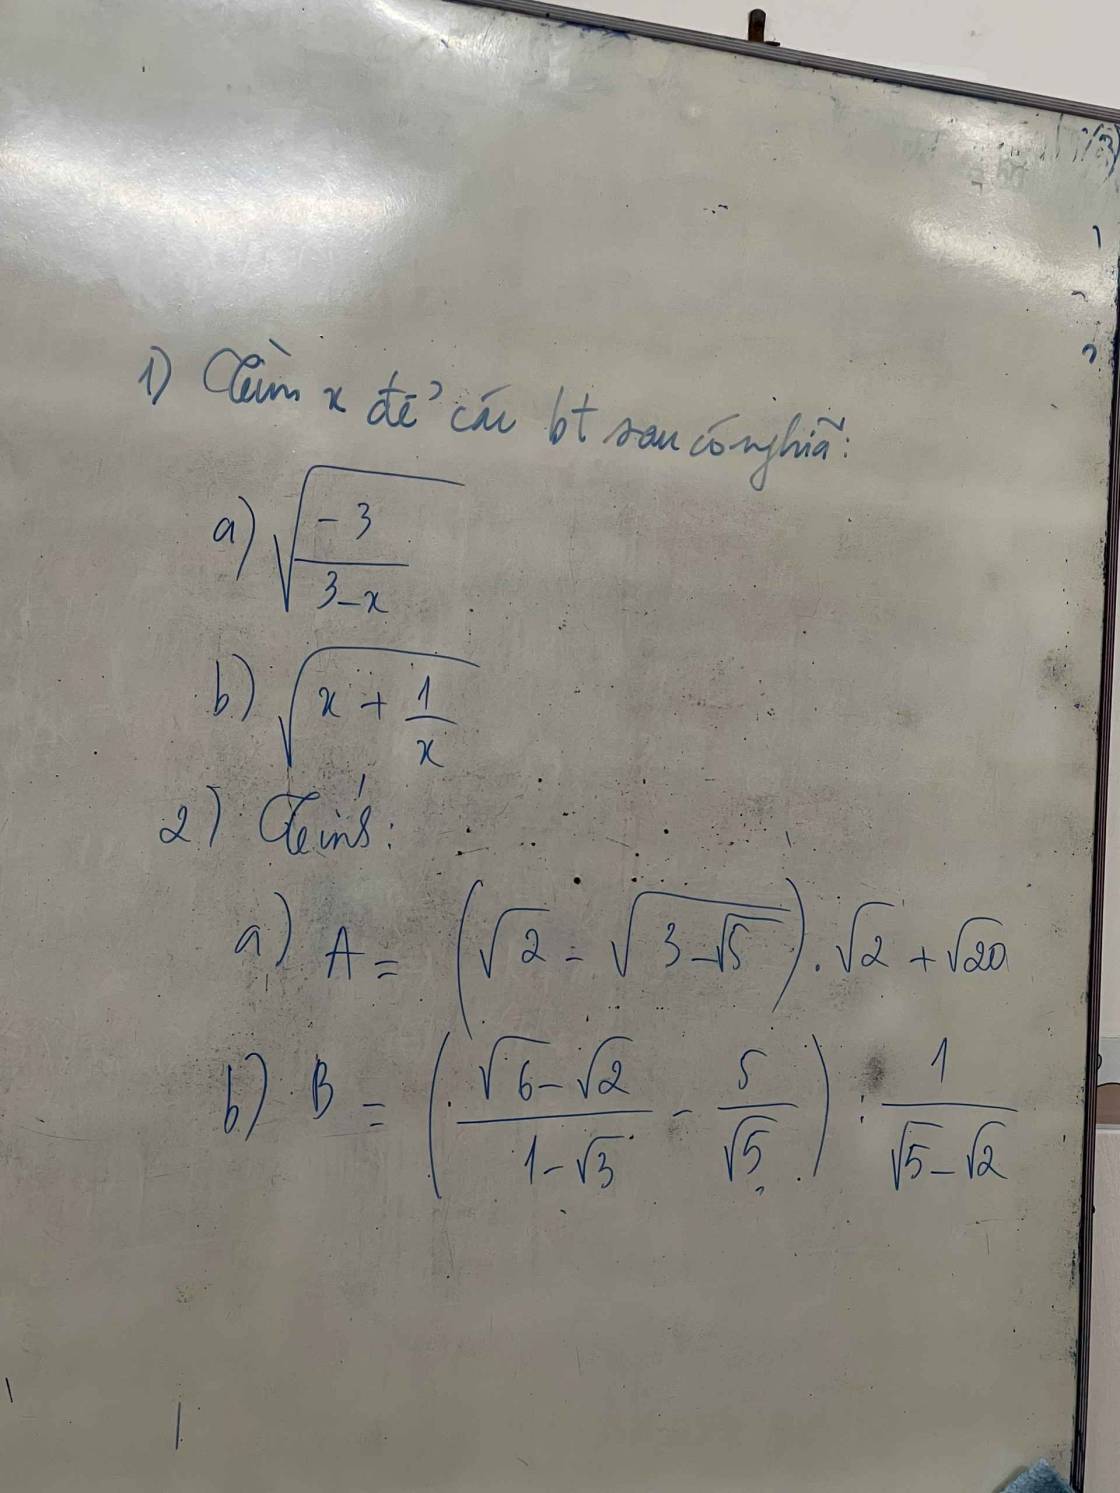 1) Tìm x để các bt sau có nghĩa:
a) √(-3/(3-x))
b) √(x + 1/x)
2) Tính:
a) A = (√2 - √(3-√5)) . √2 + √20
b) B = ((√6-√2)/(1-√3) - 5/√5) : 1/(√5-√2)